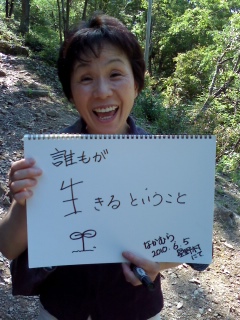 誰もが
生きるということ
なかむら
2010.6.5
にて